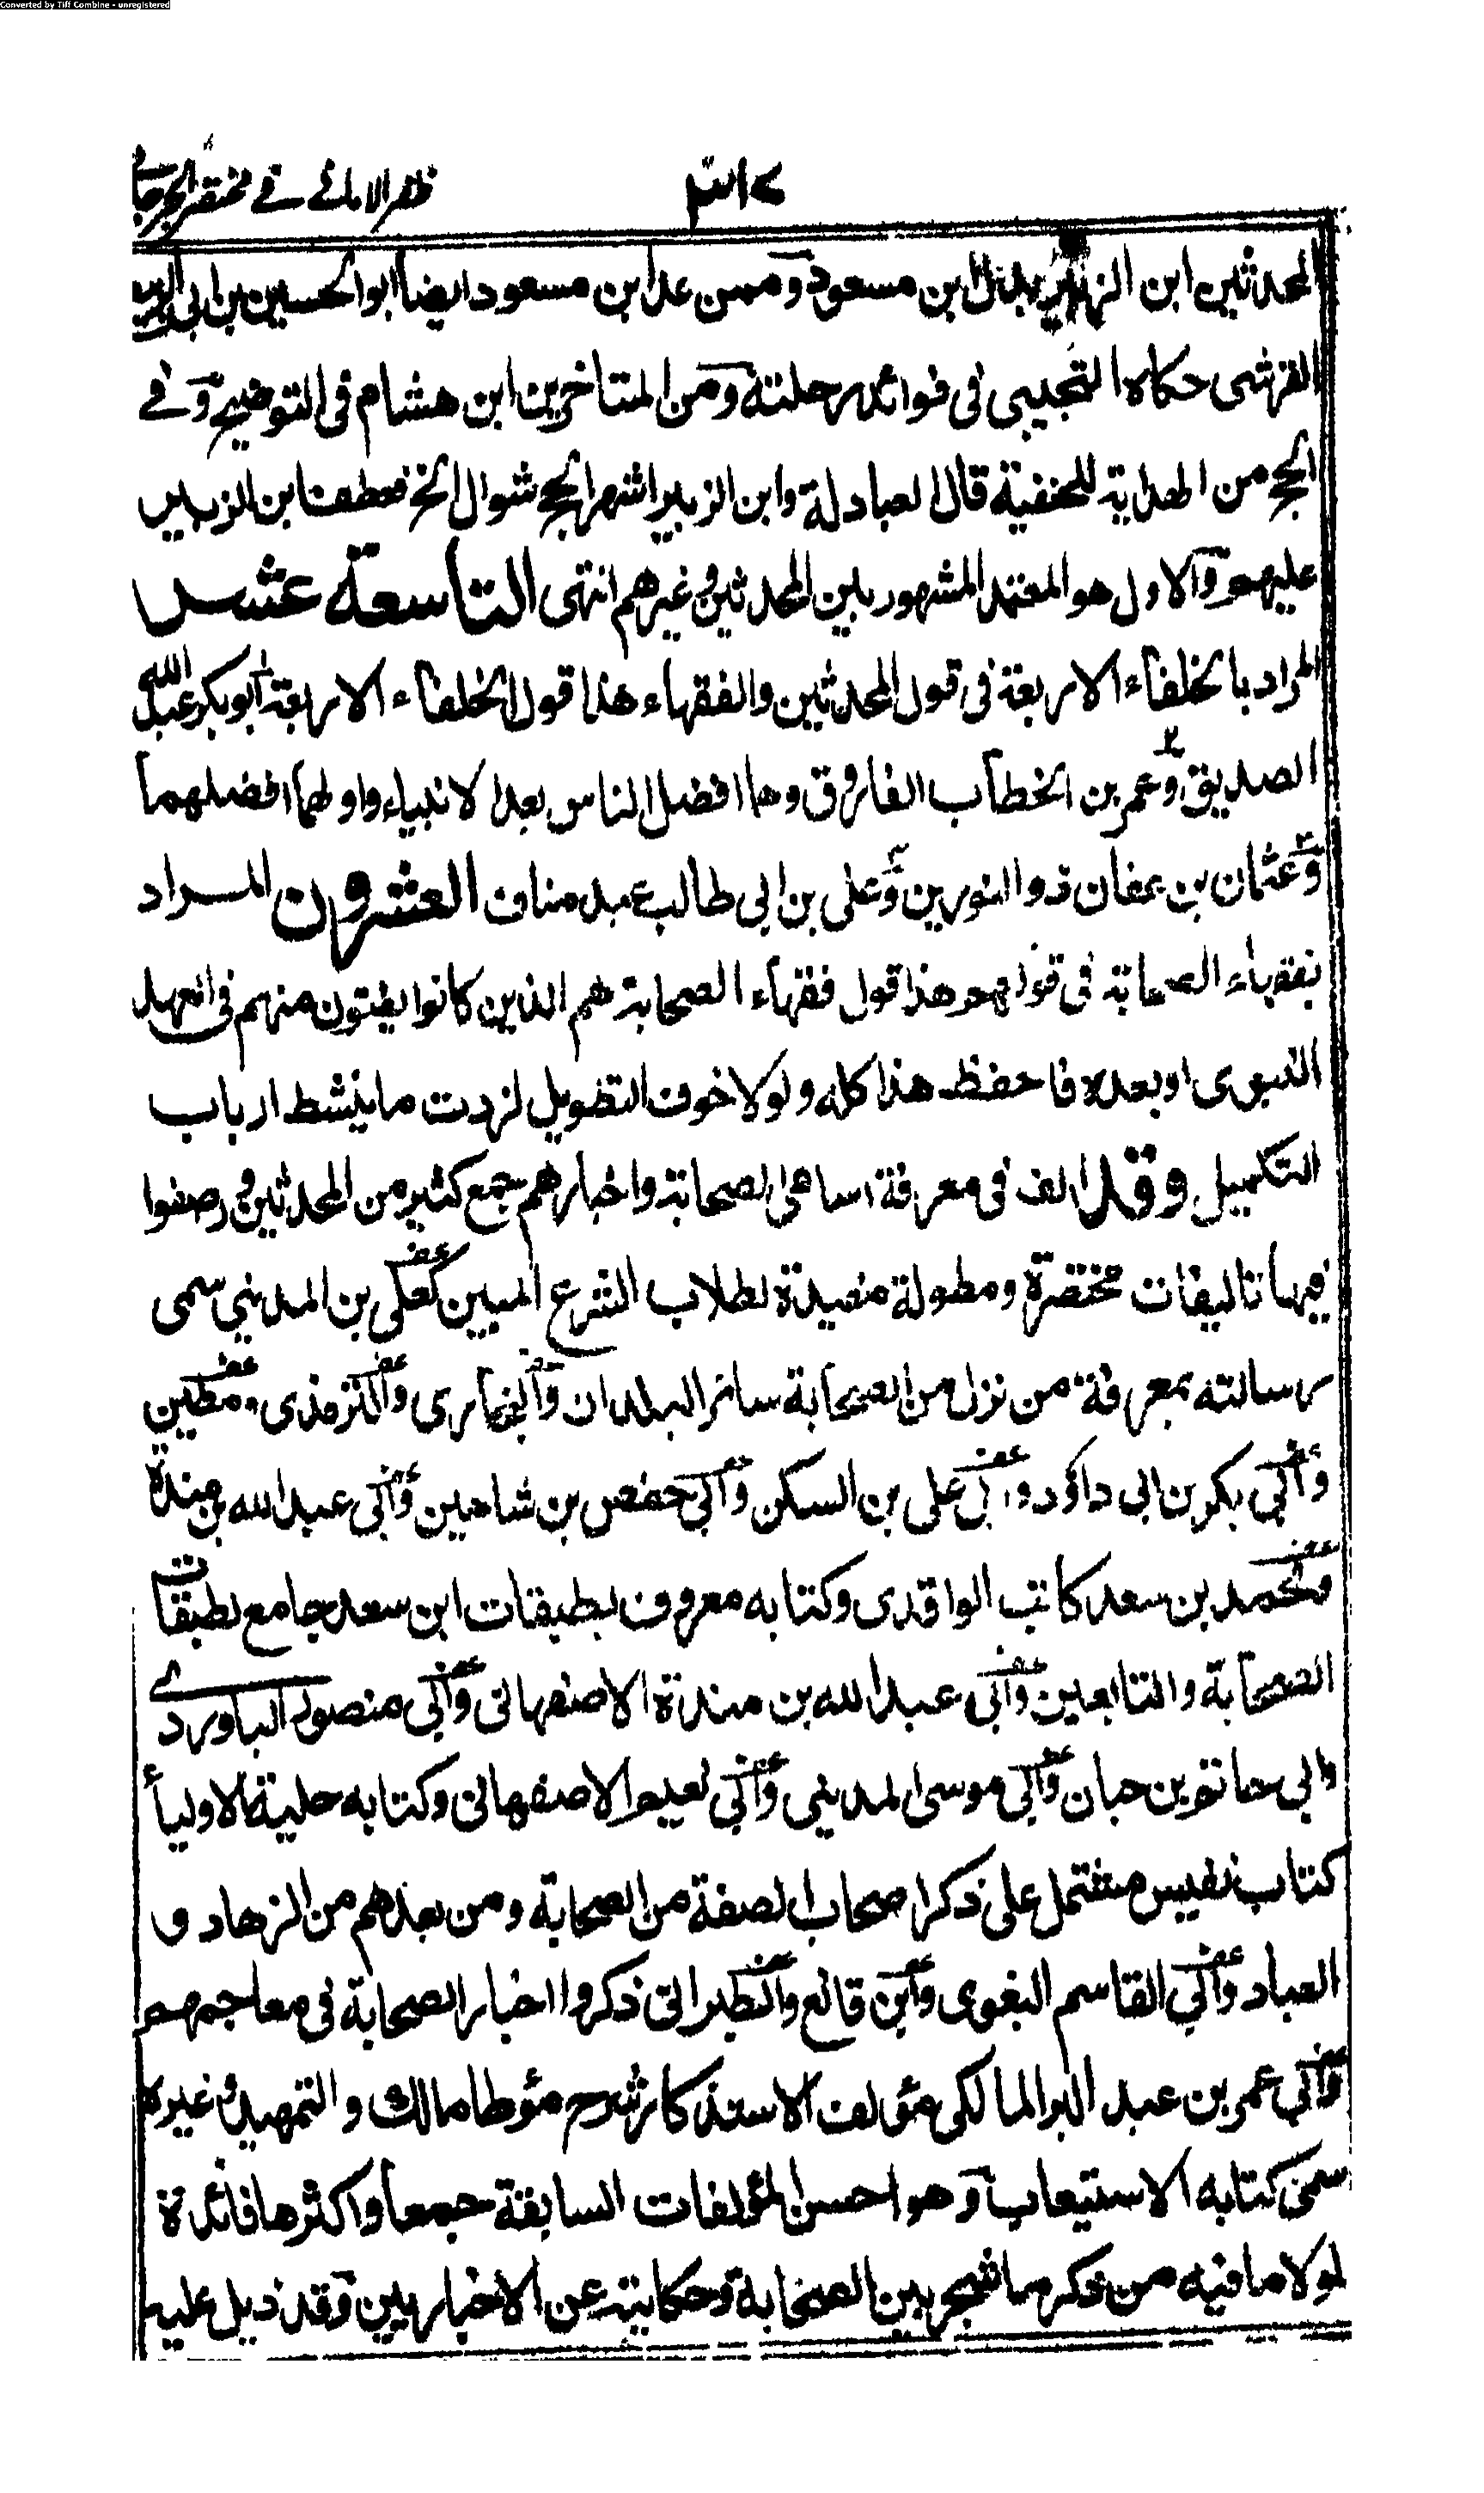 Converted by Tiff Combine - unregistered
ظفر الامانے فے مختصر الجرجانے
٣١٢
المحدثين ابن الزبير بدل ابن مسعود وممن عد ابن مسعود ايضا ابو الحسين بن ابى الربيع
القرشى حكاه التجيبى فى فوائد رحلته ومن المتاخرين ابن هشام فى التوضيح وفے
الحج من الهداية للحنفية قال العبادلة وابن الزبير اشهر الحج شوال الخ فعطف ابن الزبير
عليهم والاول هو المعتمد المشهور بين المحدثين وغيرهم انتهى التاسعة عشر
المراد بالخلفاء الاربعة فى قول المحدثين والفقهاء هذا قول الخلفاء الاربعة ابوبكر عبد الله
الصديق وعمر بن الخطاب الفاروق وهما افضل الناس بعد الانبياء واولهما افضلهما
وعثمان بن عفان ذو النورين وعلى بن ابى طالب عبد مناف العشرون المراد
بفقهاء الصحابة فى قولهم هذا قول فقهاء الصحابة هم الذين كانوا يفتون منهم فى العهد
النبوى او بعده فاحفظ هذا كله ولولا خوف التطويل لزدت ما ينشط ارباب
التكميل وقد الف فى معرفة اسامى الصحابة واخبارهم جمع كثير من المحدثين وصنفوا
فيها تاليفات مختصرة ومطولة مفيدة لطلاب الشرع المبين كعلى بن المدينى سمى
رسالته بمعرفة من نزل من الصحابة سائر البلدان والبخارى والترمذى ومطين
وابى بكر بن ابى داؤد وابى على بن السكن وابى حفص بن شاهين وابى عبد الله بن مندة
ومحمد بن سعد كاتب الواقدى وكتابه معروف بطبقات ابن سعد جامع لطبقات
الصحابة والتابعين وابى عبد الله بن مندة الاصفهانى وابى منصور الباوردے
وابى حاتم بن حبان وابى موسى المدينى وابى نعيم الاصفهانى وكتابه حلية الاولياء
كتاب نفيس مشتمل على ذكر اصحاب الصفة من الصحابة ومن بعدهم من الزهاد و
العباد وابى القاسم البغوى وابن قانع والطبرانى ذكروا اخبار الصحابة فى معاجمهم
وابى عمر بن عبد البر المالكى مؤلف الاستذكار شرح مؤطا مالك والتمهيد وغيره
سمى كتابه الاستيعاب وهو احسن المؤلفات السابقة جمعا واكثرها فائدة
لولا ما فيه من ذكر ما شجر بين الصحابة وحكايته عن الاخباريين وقد ذيل عليه